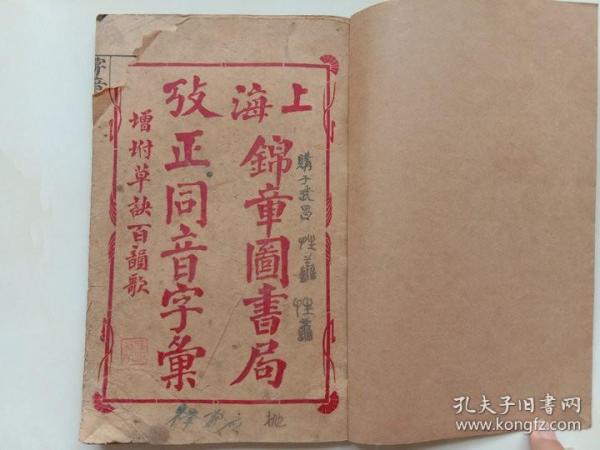 上海
錦章圖書局
攷正同音字彙
增坿草訣百韻歌
購于武昌
字音
孔夫子旧书网
kongfz.com